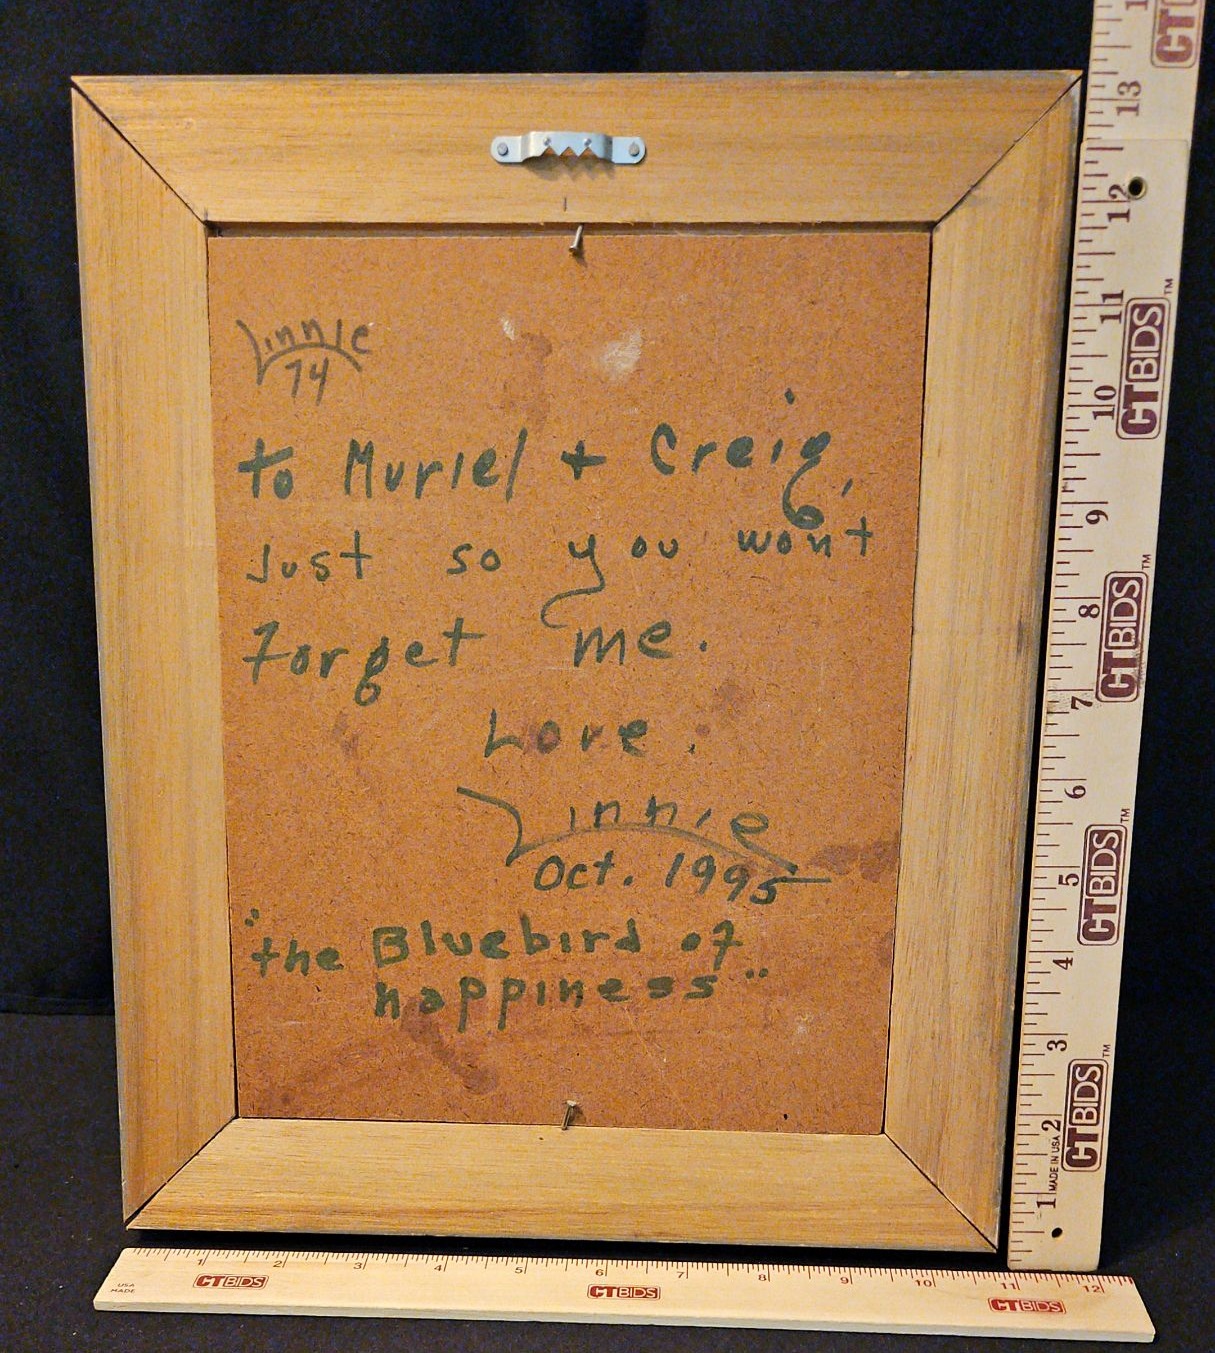 Linnie
74
to Muriel + Creig,
Just so you wont
forget me.
Love.
Linnie
Oct. 1995
"the Bluebird of
happiness"
13
12
11
10
9
8
7
6
5
4
3
2
1
CTBIDS™
CTBIDS™
CTBIDS™
CTBIDS™
CTBIDS
MADE IN USA
1 2 3 4 5 6 7 8 9 10 11 12
USA
MADE
CTBIDS CTBIDS CTBIDS